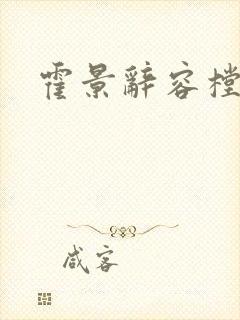 霍景辭容樘
咸客